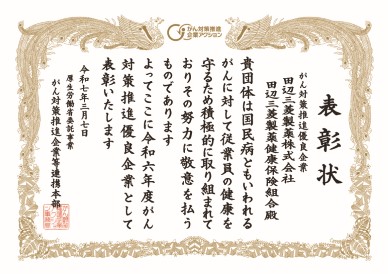 がん対策推進
企業アクション
表彰状
がん対策推進優良企業
田辺三菱製薬株式会社
田辺三菱製薬健康保険組合殿
貴団体は国民病ともいわれる
がんに対して従業員の健康を
守るため積極的に取り組まれて
おりその努力に敬意を払う
ものであります
よってここに令和六年度がん
対策推進優良企業として
表彰いたします
令和七年三月七日
厚生労働省委託事業
がん対策推進企業等連携本部